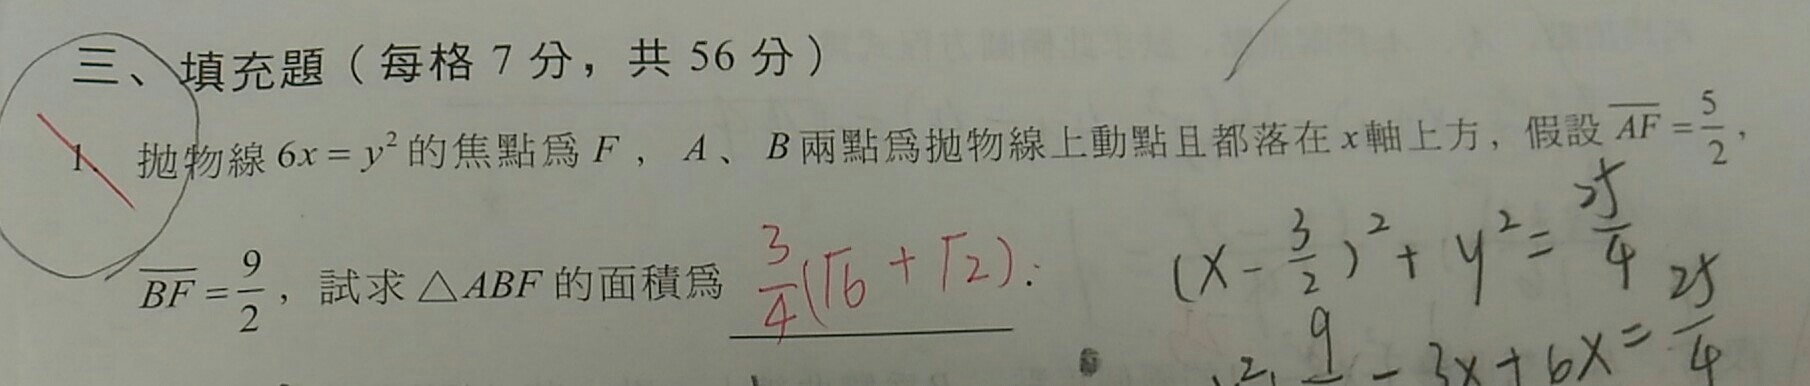 三、填充題（每格 7 分，共 56 分）
1. 拋物線 6x = y² 的焦點爲 F，A、B 兩點爲拋物線上動點且都落在 x 軸上方，假設 AF = 5/2，
BF = 9/2，試求 △ABF 的面積爲 3/4(√6 + √2).
(x - 3/2)² + y² = 25/4
9 - 3x + 6x = 25/4